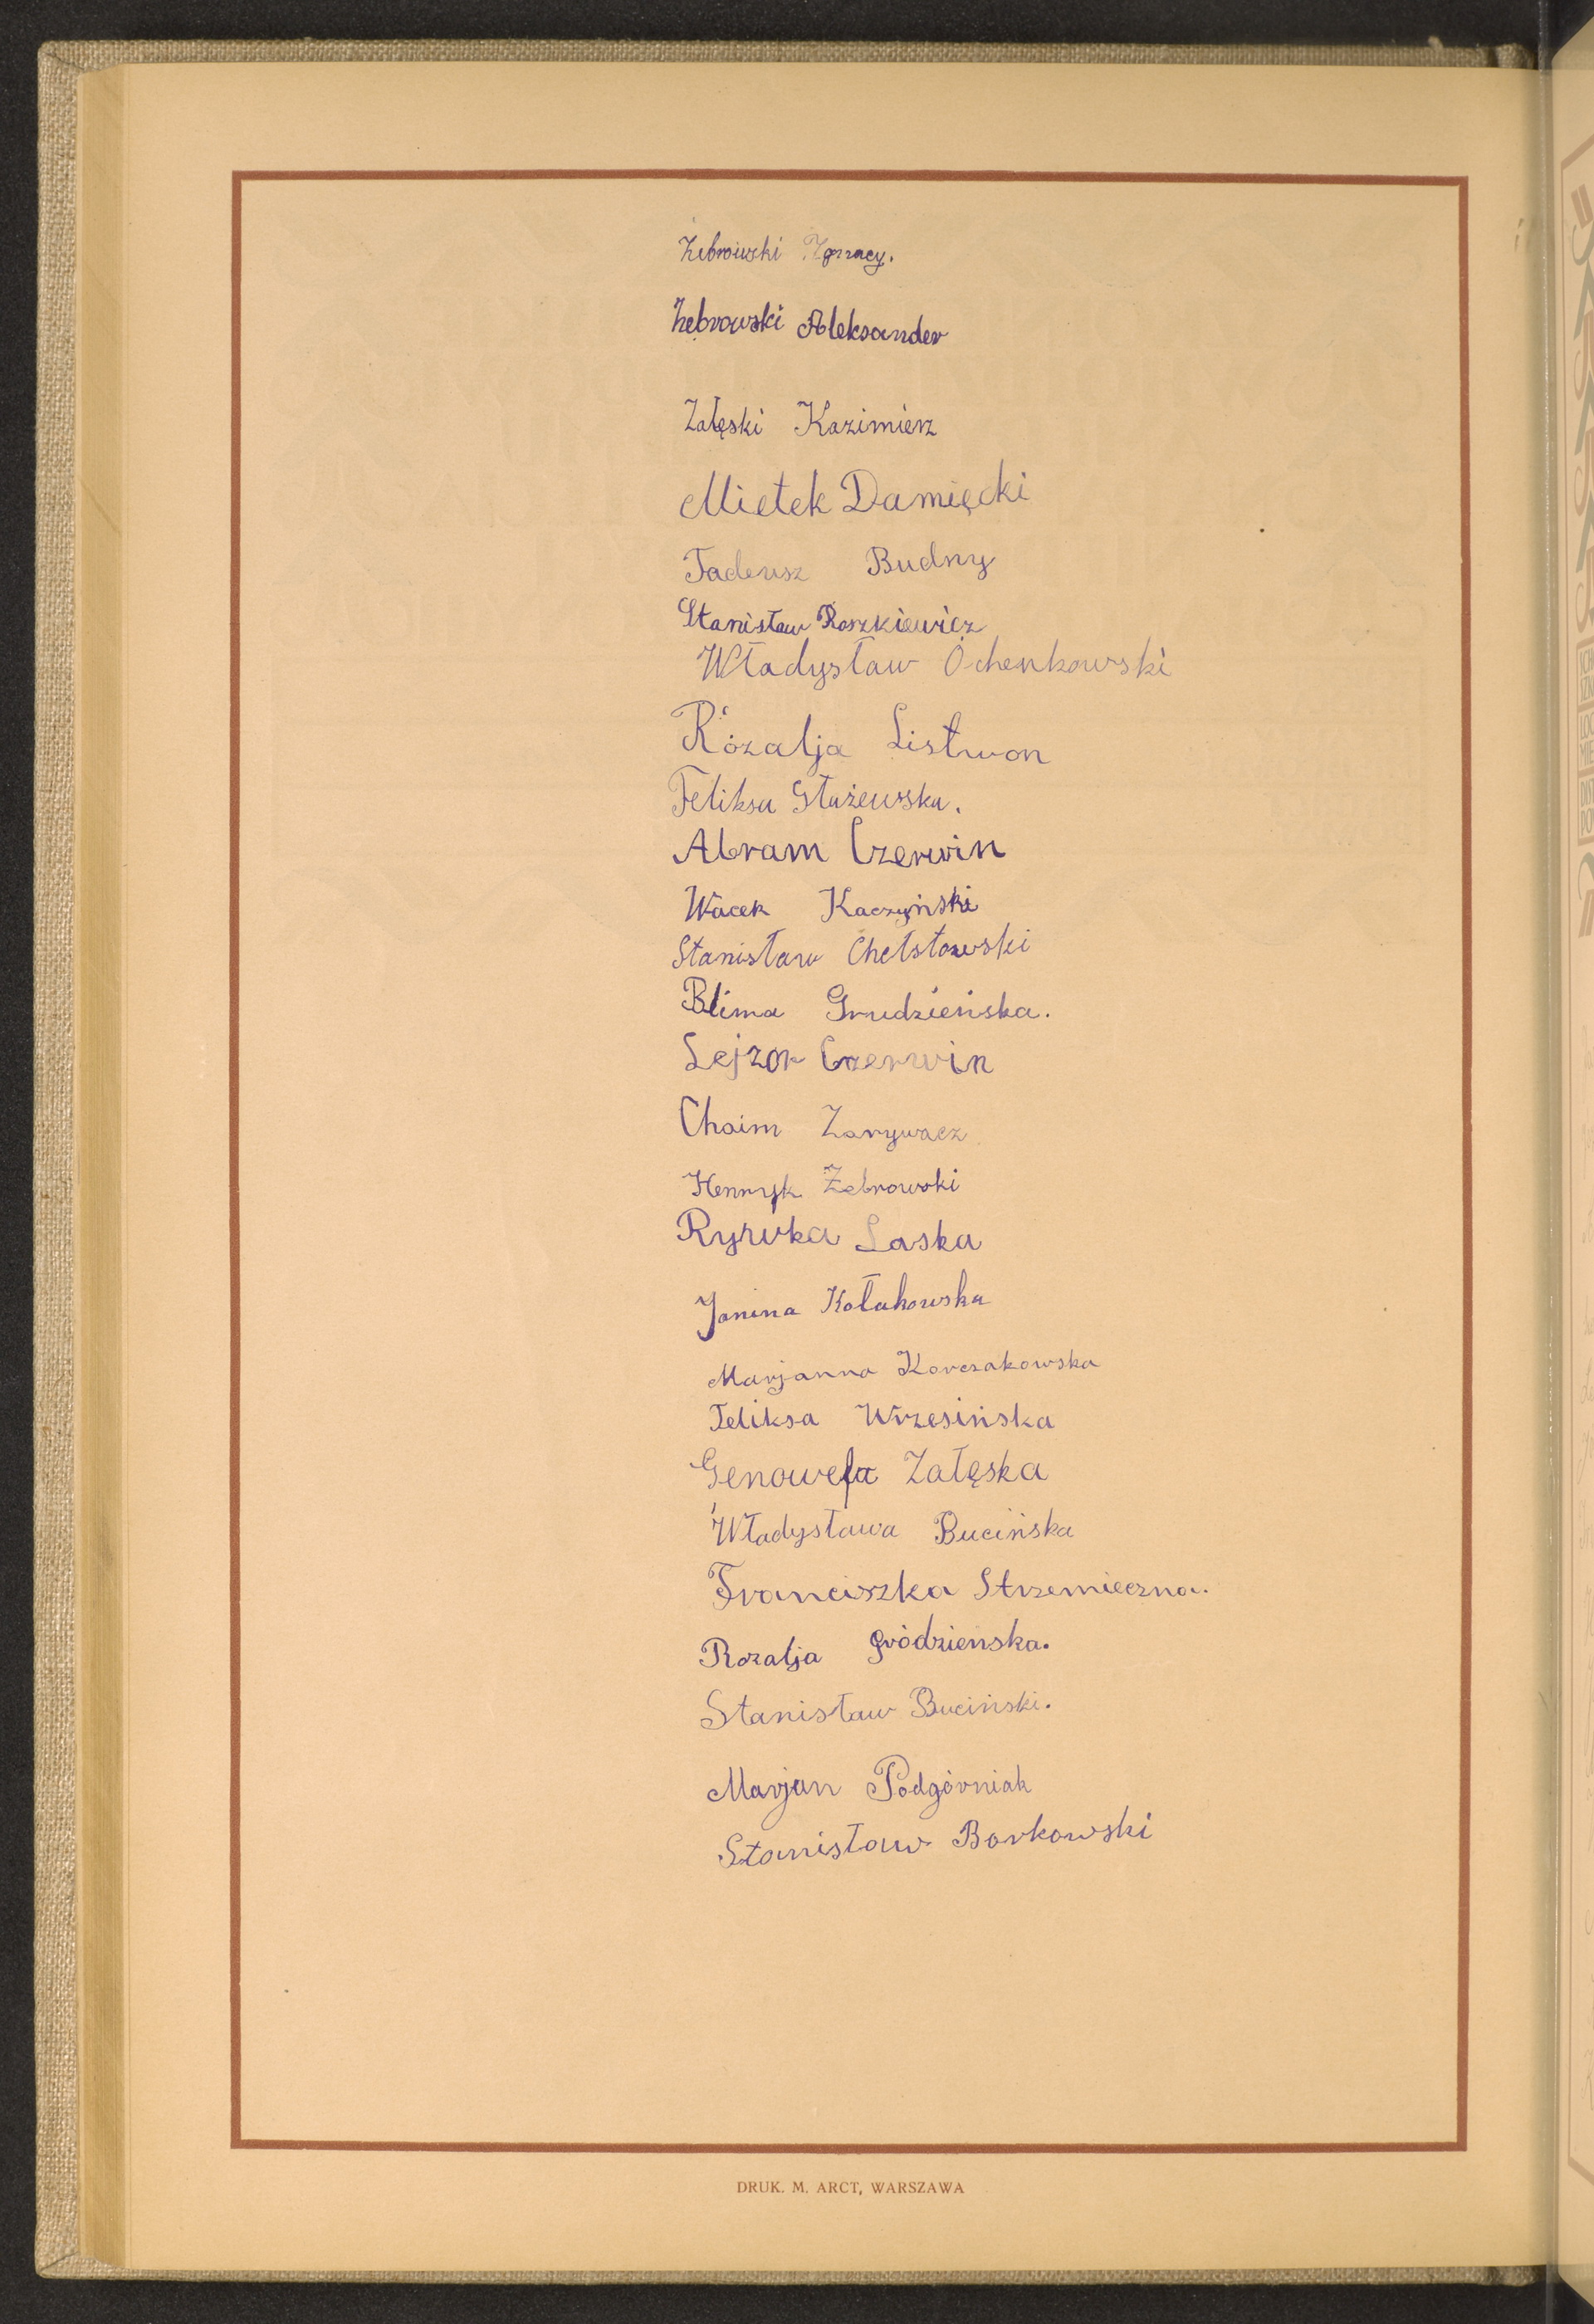 Żebrowski Ignacy.
Żebrowski Aleksander
Załęski Kazimierz
Mietek Damięcki
Tadeusz Budny
Stanisław Roszkiewicz
Władysław Ochenkowski
Rózalja Listwon
Feliksa Stażewska.
Abram Czerwin
Wacek Kaczyński
Stanisław Chełstowski
Blima Grudzieńska.
Lejzor Czerwin
Chaim Zarywacz
Henryk Żebrowski
Rywka Laska
Janina Kołakowska
Marjanna Korczakowska
Feliksa Wrzesińska
Genowefa Załęska
Władysława Bucińska
Franciszka Strzemieczna.
Rozalja Gródzieńska.
Stanisław Buciński.
Marjan Podgórniak
Stanisław Borkowski
DRUK. M. ARCT, WARSZAWA